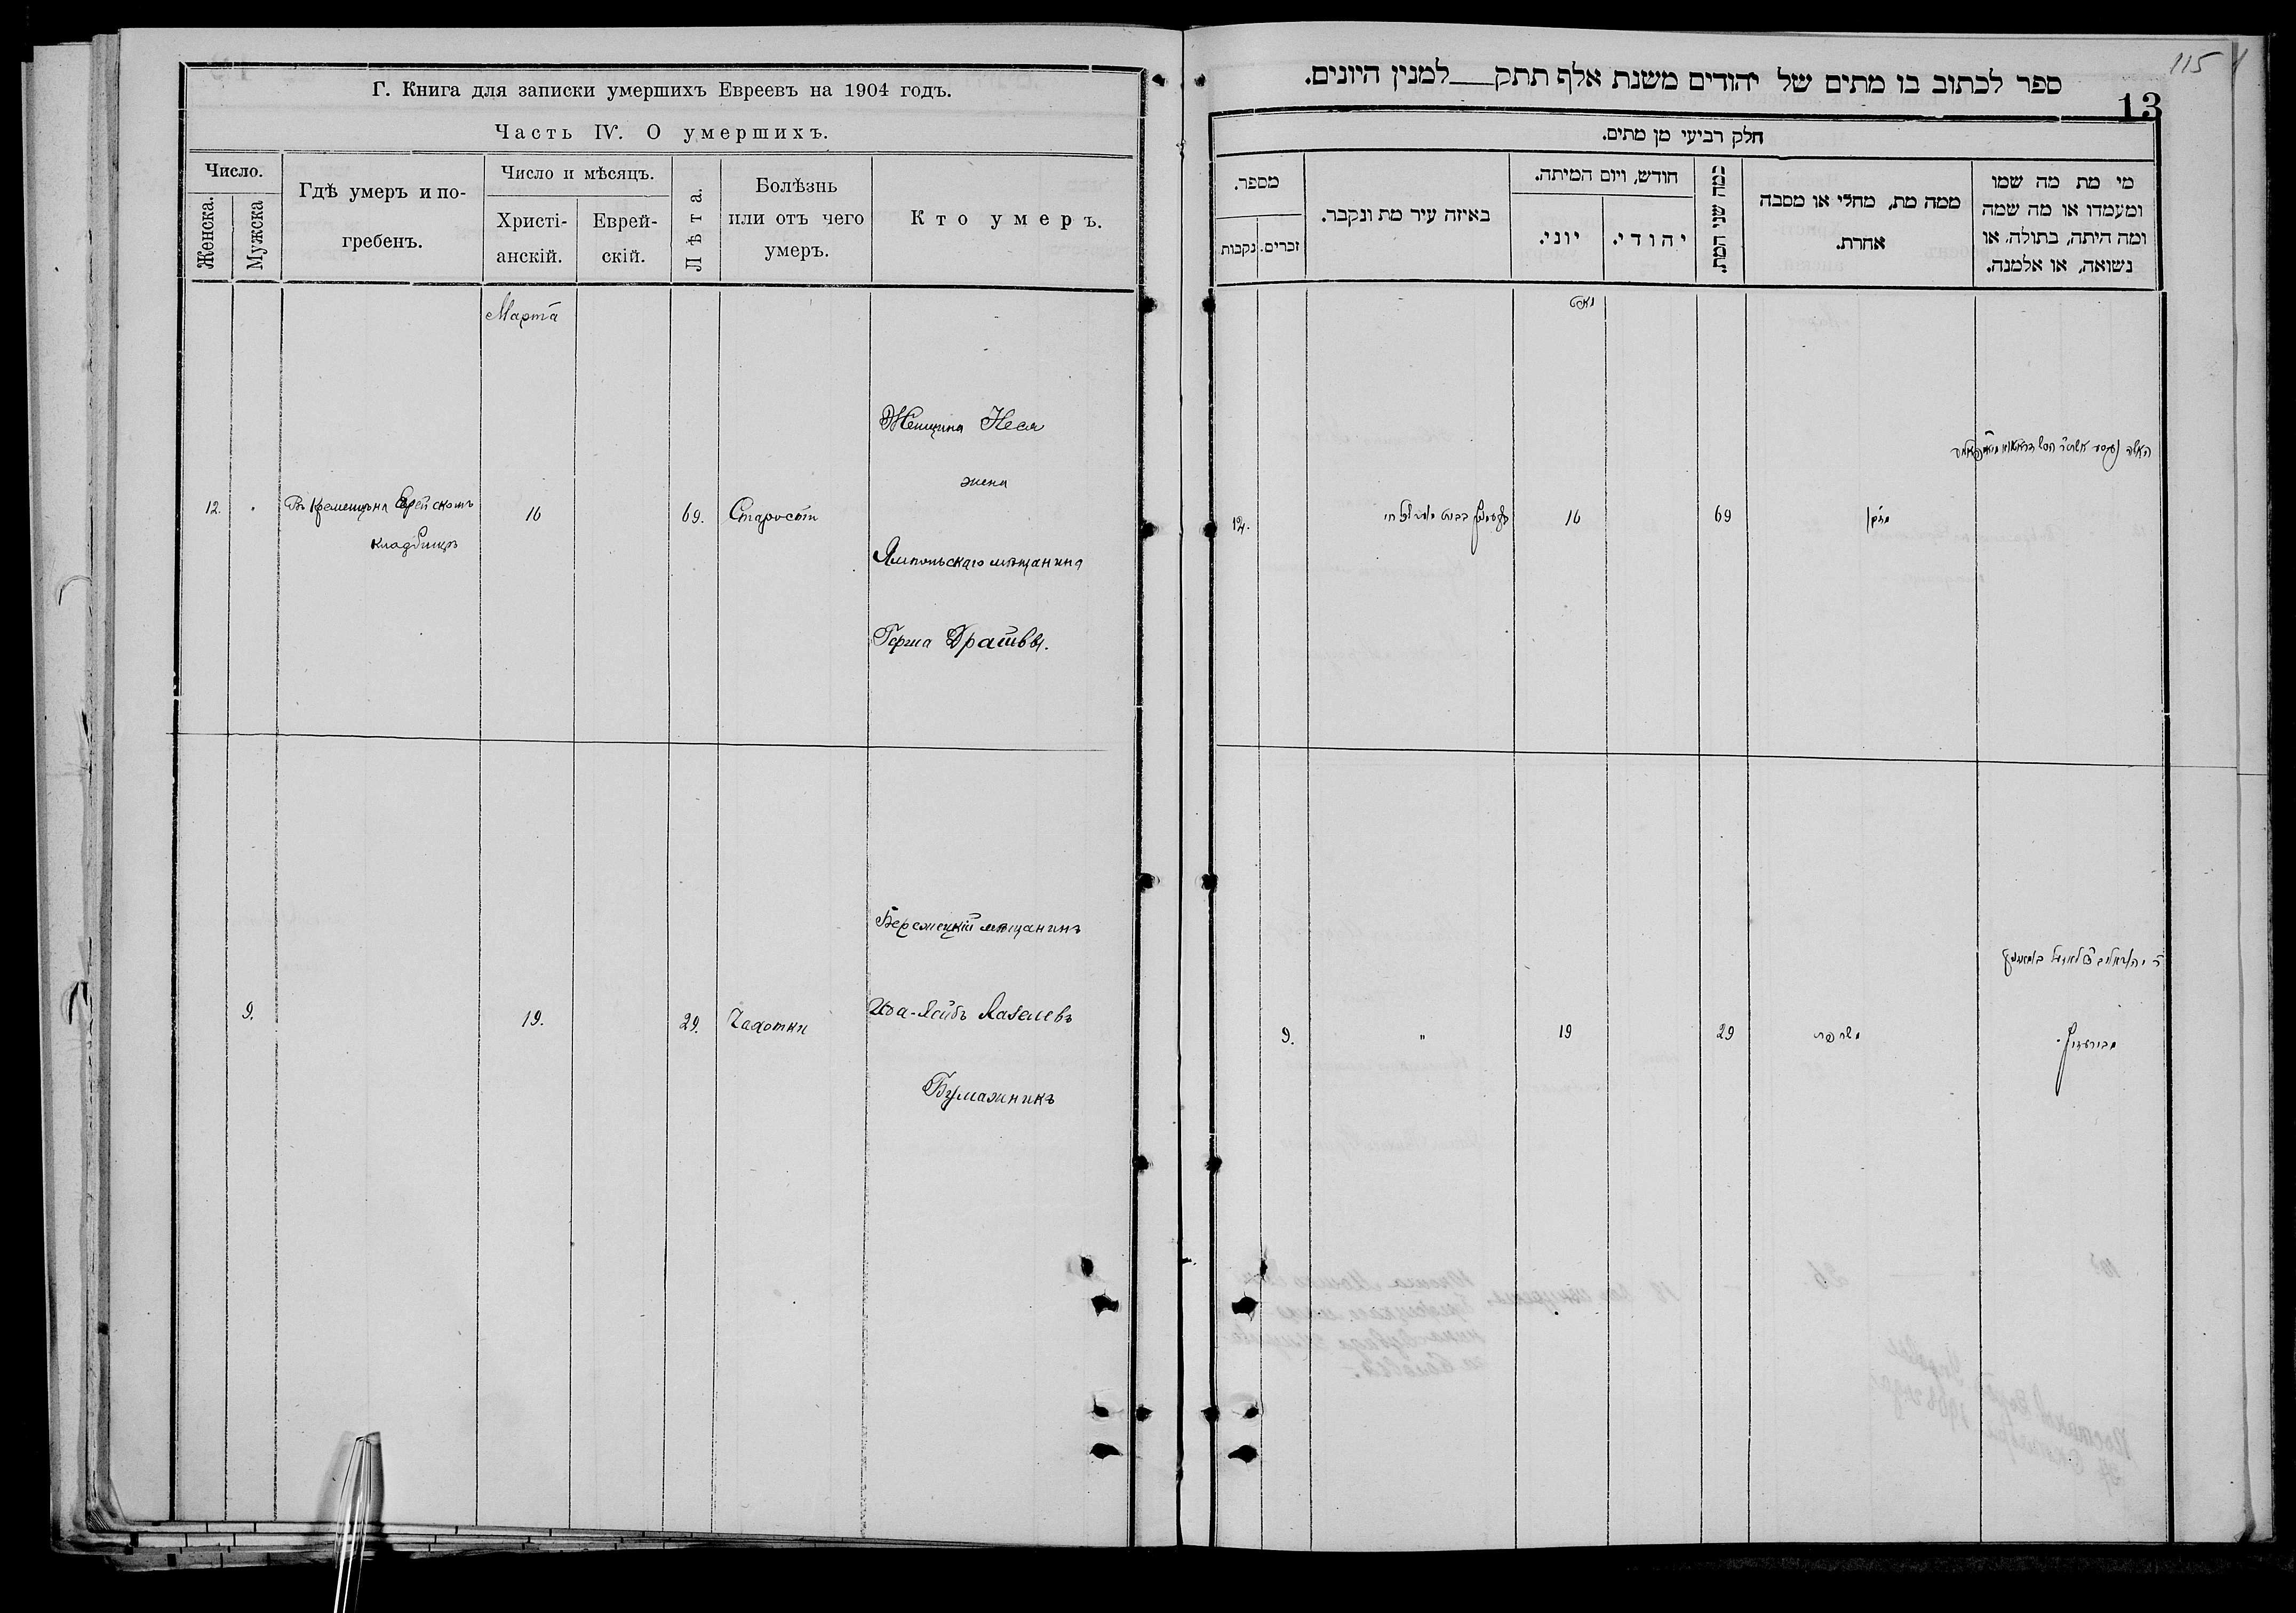 Г. Книга для записки умершихъ Евреевъ на 1904 годъ.
Часть IV. О умершихъ.
Число.
Женска.
Мужска
Гдѣ умеръ и по-
гребенъ.
Число и мѣсяцъ.
Христі-
анскій.
Еврей-
скій.
Лѣта.
Болѣзнь
или отъ чего
умеръ.
Кто умеръ.
Марта
12.
Въ Кременцѣ на Еврейскомъ
кладбищѣ
16
69.
Старости
Женщина Неся
жена
Ямпольскаго мѣщанина
Герша Драшвы.
9.
19.
29.
Чахотки
Бережецкій мѣщанинъ
Ида-Лейбъ Лазелевъ
Бумажникъ
115
ספר לכתוב בו מתים של יהודים משנת אלף תתק למנין היונים.
13
חלק רביעי מן מתים.
מספר.
נקבות
זכרים.
באיזה עיר מת ונקבר.
חודש, ויום המיתה.
יוני.
יהודי.
כמה שני המת.
ממה מת, מחלי או מסבה
אחרת.
מי מת מה שמו
ומעמדו או מה שמה
ומה היתה, בתולה, או
נשואה, או אלמנה.
12.
16
69
9.
"
19
29